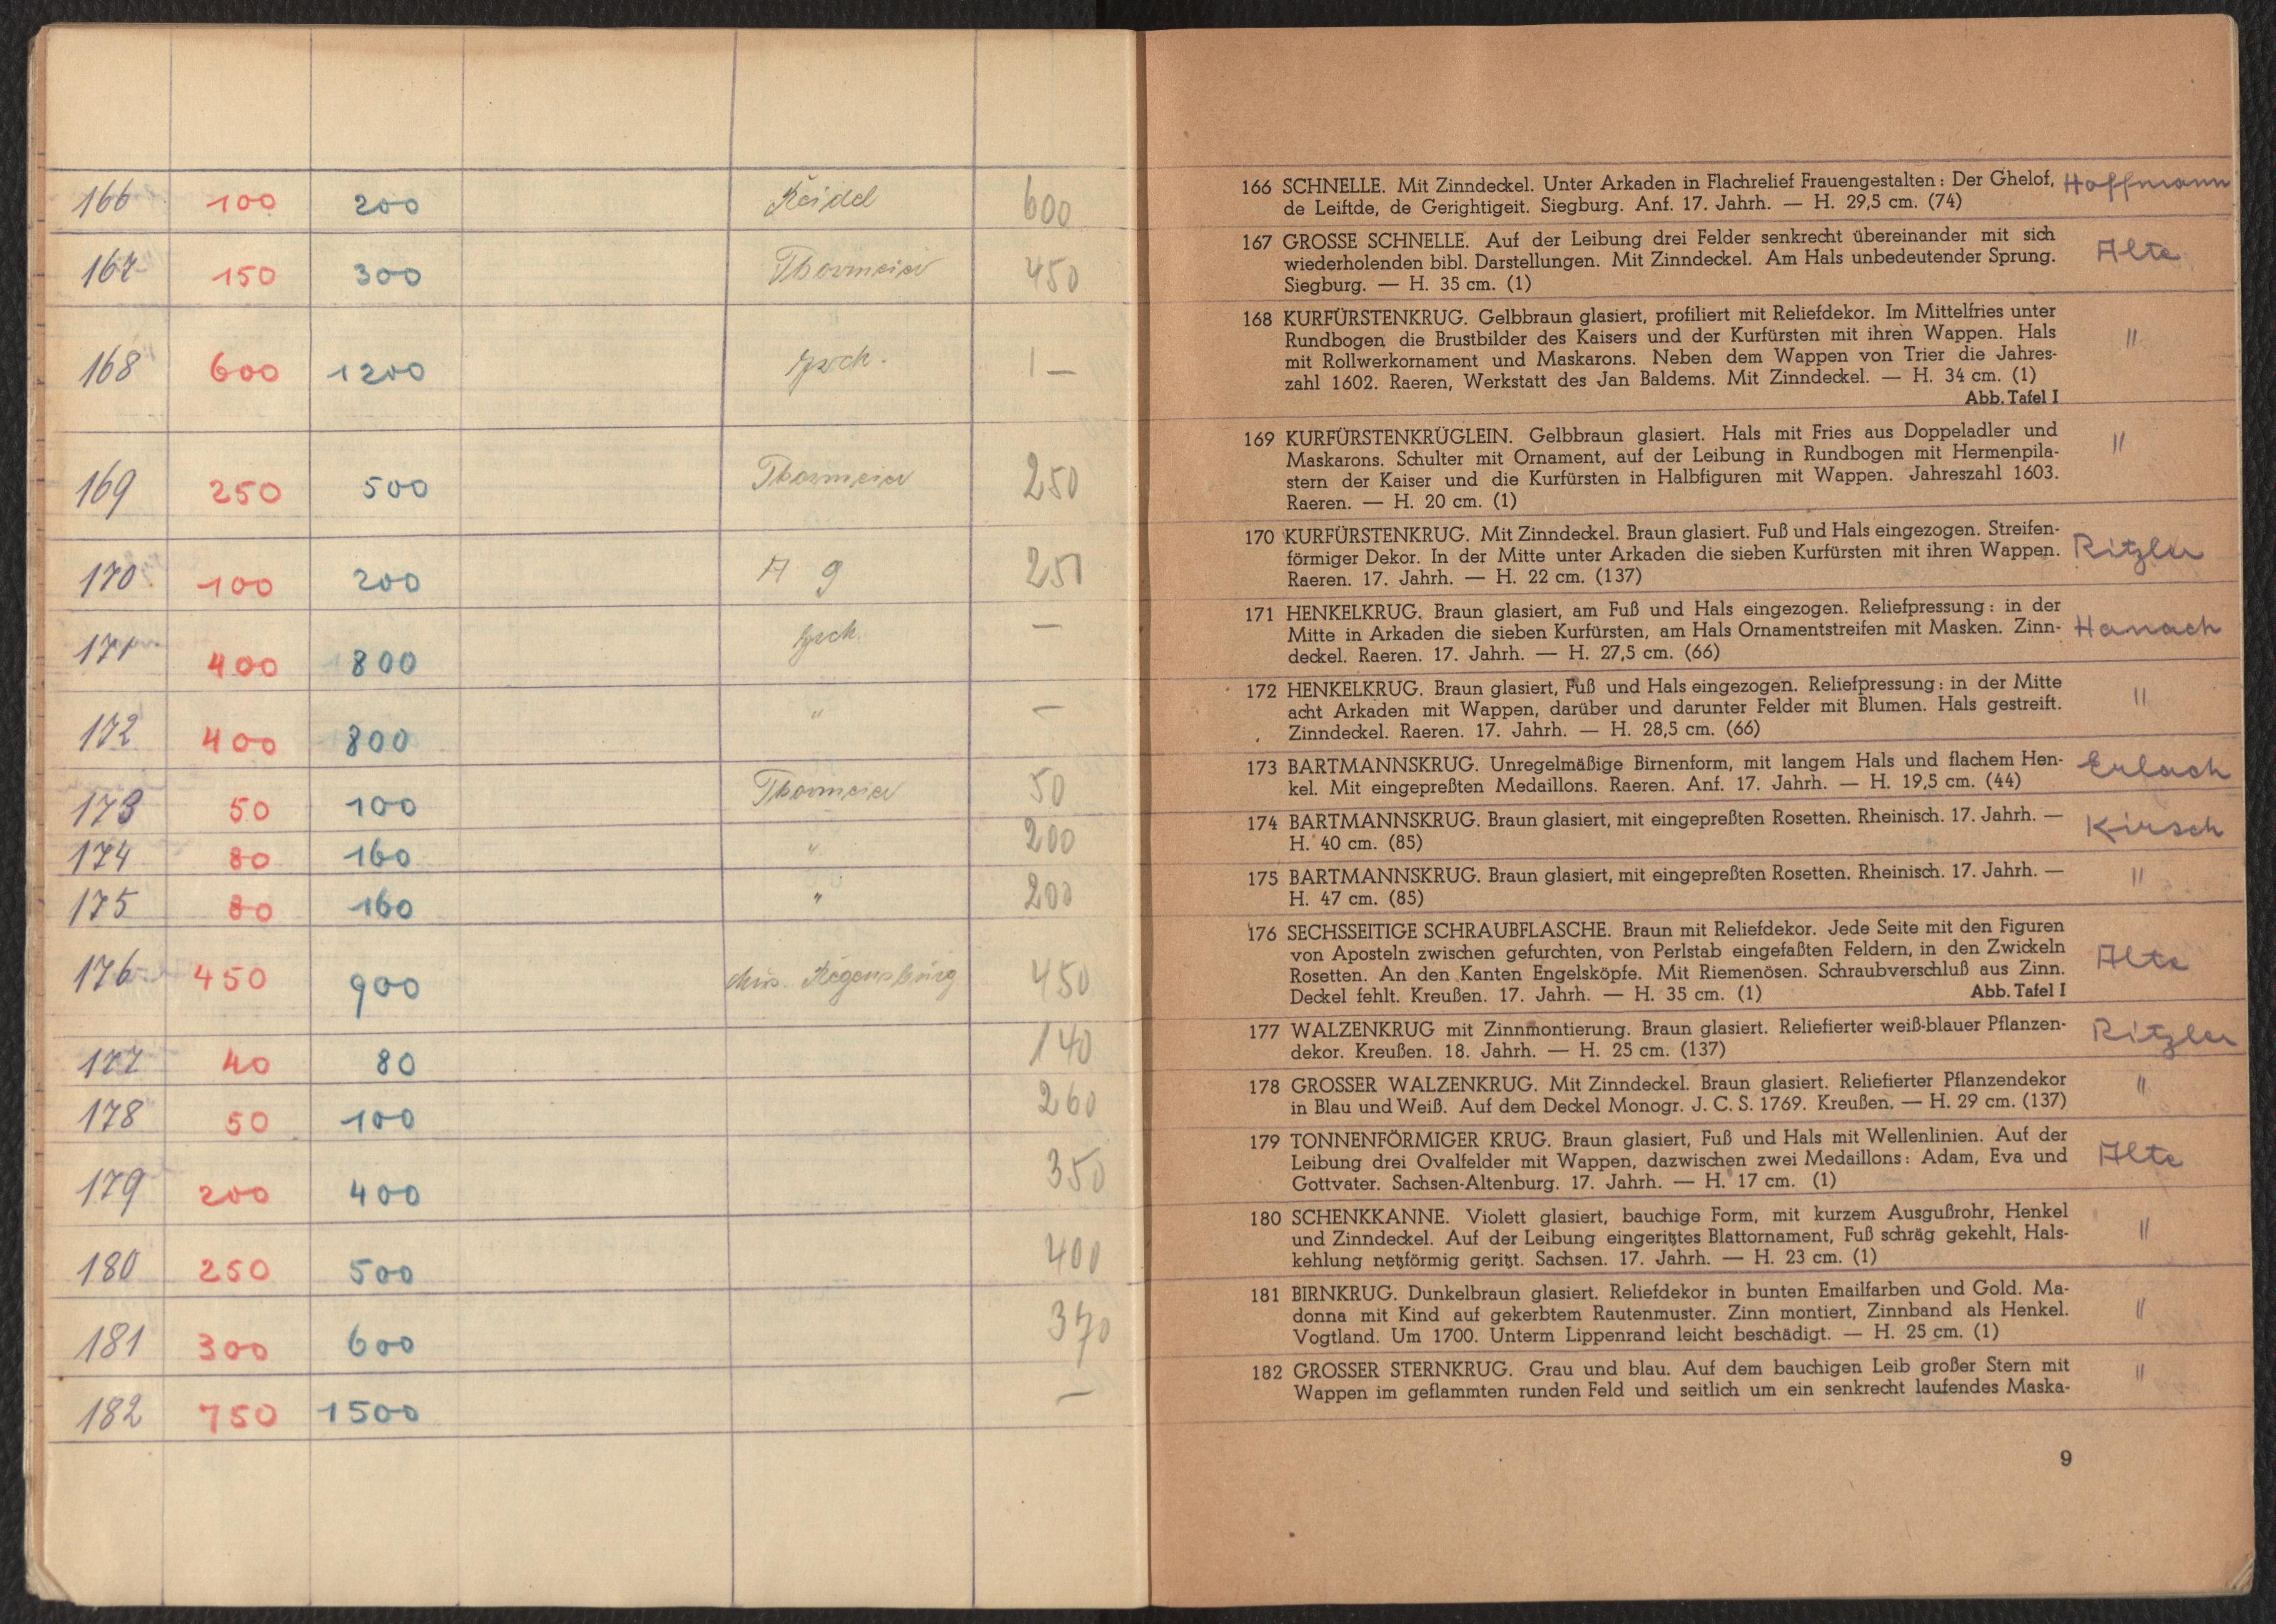 166 100 200 Reidel 600
167 150 300 Thormeier 450
168 600 1200 —
169 250 500 Thormeier 250
170 100 200 A 9 250
171 400 800 —
172 400 800 " —
173 50 100 Thormeier 50
174 80 160 " 200
175 80 160 " 200
176 450 900 Mus. Regensburg 450
177 40 80 140
178 50 100 260
179 200 400 350
180 250 500 400
181 300 600 370
182 750 1500 —
166 SCHNELLE. Mit Zinndeckel. Unter Arkaden in Flachrelief Frauengestalten: Der Ghelof, Hoffmann
de Leiftde, de Gerightigeit. Siegburg. Anf. 17. Jahrh. — H. 29,5 cm. (74)
167 GROSSE SCHNELLE. Auf der Leibung drei Felder senkrecht übereinander mit sich
wiederholenden bibl. Darstellungen. Mit Zinndeckel. Am Hals unbedeutender Sprung. Alte
Siegburg. — H. 35 cm. (1)
168 KURFÜRSTENKRUG. Gelbbraun glasiert, profiliert mit Reliefdekor. Im Mittelfries unter
Rundbogen die Brustbilder des Kaisers und der Kurfürsten mit ihren Wappen. Hals "
mit Rollwerkornament und Maskarons. Neben dem Wappen von Trier die Jahres-
zahl 1602. Raeren, Werkstatt des Jan Baldems. Mit Zinndeckel. — H. 34 cm. (1)
Abb. Tafel I
169 KURFÜRSTENKRÜGLEIN. Gelbbraun glasiert. Hals mit Fries aus Doppeladler und "
Maskarons. Schulter mit Ornament, auf der Leibung in Rundbogen mit Hermenpila-
stern der Kaiser und die Kurfürsten in Halbfiguren mit Wappen. Jahreszahl 1603.
Raeren. — H. 20 cm. (1)
170 KURFÜRSTENKRUG. Mit Zinndeckel. Braun glasiert. Fuß und Hals eingezogen. Streifen-
förmiger Dekor. In der Mitte unter Arkaden die sieben Kurfürsten mit ihren Wappen. Ritzler
Raeren. 17. Jahrh. — H. 22 cm. (137)
171 HENKELKRUG. Braun glasiert, am Fuß und Hals eingezogen. Reliefpressung: in der
Mitte in Arkaden die sieben Kurfürsten, am Hals Ornamentstreifen mit Masken. Zinn- Hanach
deckel. Raeren. 17. Jahrh. — H. 27,5 cm. (66)
172 HENKELKRUG. Braun glasiert, Fuß und Hals eingezogen. Reliefpressung: in der Mitte "
acht Arkaden mit Wappen, darüber und darunter Felder mit Blumen. Hals gestreift.
Zinndeckel. Raeren. 17. Jahrh. — H. 28,5 cm. (66)
173 BARTMANNSKRUG. Unregelmäßige Birnenform, mit langem Hals und flachem Hen- Erlach
kel. Mit eingepreßten Medaillons. Raeren. Anf. 17. Jahrh. — H. 19,5 cm. (44)
174 BARTMANNSKRUG. Braun glasiert, mit eingepreßten Rosetten. Rheinisch. 17. Jahrh. — Kirsch
H. 40 cm. (85)
175 BARTMANNSKRUG. Braun glasiert, mit eingepreßten Rosetten. Rheinisch. 17. Jahrh. — "
H. 47 cm. (85)
176 SECHSSEITIGE SCHRAUBFLASCHE. Braun mit Reliefdekor. Jede Seite mit den Figuren
von Aposteln zwischen gefurchten, von Perlstab eingefaßten Feldern, in den Zwickeln Alte
Rosetten. An den Kanten Engelsköpfe. Mit Riemenösen. Schraubverschluß aus Zinn.
Deckel fehlt. Kreußen. 17. Jahrh. — H. 35 cm. (1) Abb. Tafel I
177 WALZENKRUG mit Zinnmontierung. Braun glasiert. Reliefierter weiß-blauer Pflanzen- Ritzler
dekor. Kreußen. 18. Jahrh. — H. 25 cm. (137)
178 GROSSER WALZENKRUG. Mit Zinndeckel. Braun glasiert. Reliefierter Pflanzendekor "
in Blau und Weiß. Auf dem Deckel Monogr. J. C. S. 1769. Kreußen. — H. 29 cm. (137)
179 TONNENFÖRMIGER KRUG. Braun glasiert, Fuß und Hals mit Wellenlinien. Auf der
Leibung drei Ovalfelder mit Wappen, dazwischen zwei Medaillons: Adam, Eva und Alte
Gottvater. Sachsen-Altenburg. 17. Jahrh. — H. 17 cm. (1)
180 SCHENKKANNE. Violett glasiert, bauchige Form, mit kurzem Ausgußrohr, Henkel "
und Zinndeckel. Auf der Leibung eingeritztes Blattornament, Fuß schräg gekehlt, Hals-
kehlung netzförmig geritzt. Sachsen. 17. Jahrh. — H. 23 cm. (1)
181 BIRNKRUG. Dunkelbraun glasiert. Reliefdekor in bunten Emailfarben und Gold. Ma-
donna mit Kind auf gekerbtem Rautenmuster. Zinn montiert, Zinnband als Henkel. "
Vogtland. Um 1700. Unterm Lippenrand leicht beschädigt. — H. 25 cm. (1)
182 GROSSER STERNKRUG. Grau und blau. Auf dem bauchigen Leib großer Stern mit "
Wappen im geflammten runden Feld und seitlich um ein senkrecht laufendes Maska-
9